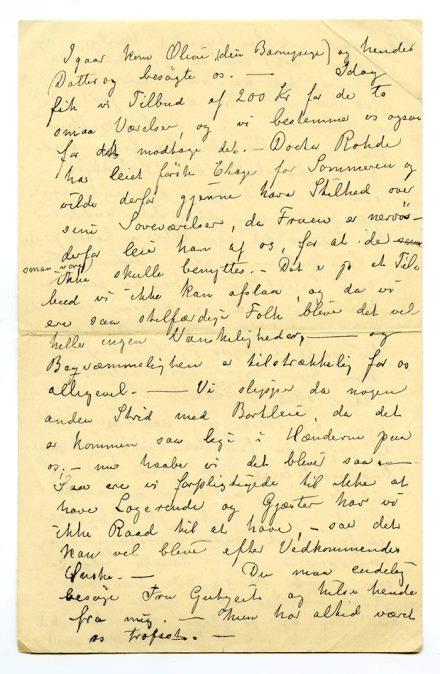 Igaar kom Oline (din Barnepige) og hendes
Datter og besøgte os. — Idag
fik vi Tilbud af 200 Kr for de to
smaa Værelser, og vi bestemmer os ogsaa
for at modtage det. — Doctor Rohde
har leiet første Etage for Sommeren og
vilde derfor gjerne have Stilhed over
sine Soveværelser, da Fruen er nervøs —
derfor leier han af os, for at de
smaa vær.
ikke skulle benyttes. — Det er jo et Til-
bud vi ikke kan afslaa, og da vi
ere saa stilfærdige Folk bliver det vel
heller ingen Vanskeligheder, — og
Beqvæmmeligheden er tilstrækkelig for os
alligevel. — Vi slipper da nogen
anden Strid med Bortleie, da det
er kommen saa legi i Hænderne paa
os. — nu haabe vi det bliver saa —
Saa ere vi forpligtigede til ikke at
have Logerende og Gjæster har vi
ikke Raad til at have, — saa det
kan vel blive efter Vedkommendes
Ønske. — Du maa endelig
besøge Fru og hilse hende
fra mig. — Hun har altid været
os trofast. —